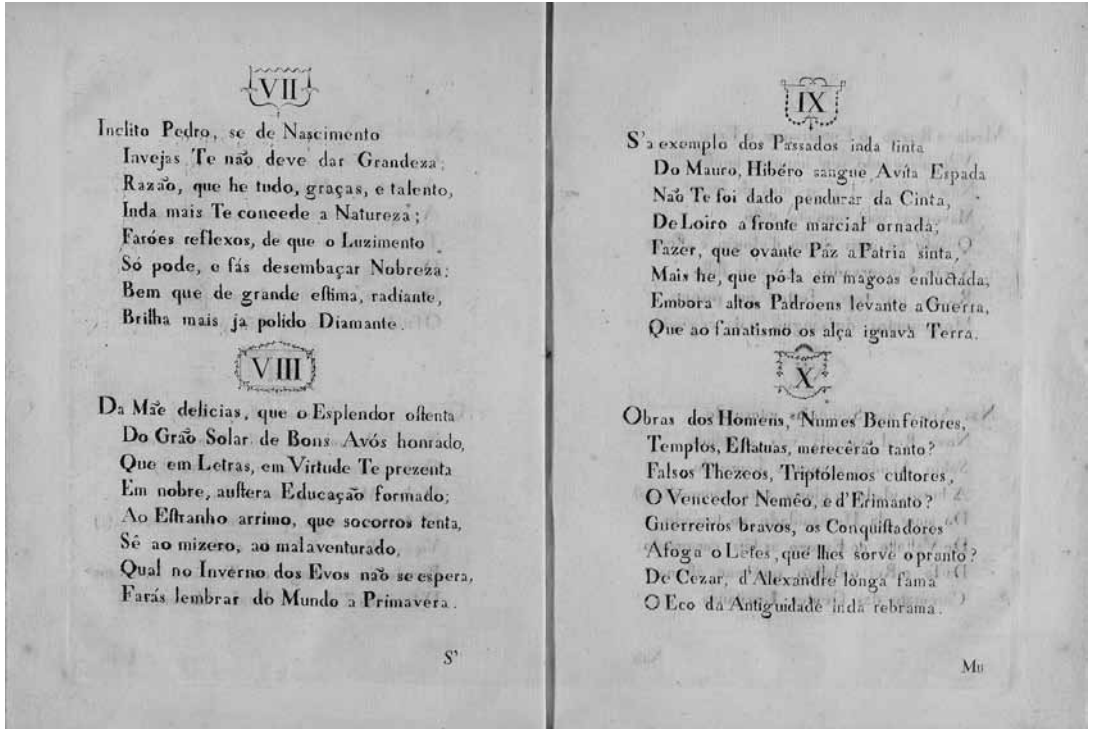 VII
Inclito Pedro, se de Nascimento
Invejas Te não deve dar Grandeza;
Razão, que he tudo, graças, e talento,
Inda mais Te concede a Natureza;
Faróes reflexos, de que o Luzimento
Só pode, e fás desembaçar Nobreza:
Bem que de grande estima, radiante,
Brilha mais ja polido Diamante.
VIII
Da Mãe delicias, que o Esplendor ostenta
Do Grão Solar de Bons Avós honrado,
Que em Letras, em Virtude Te prezenta
Em nobre, austera Educação formado;
Ao Estranho arrimo, que socorros tenta,
Sê ao mizero, ao malaventurado,
Qual no Inverno dos Evos não se espera,
Farás lembrar do Mundo a Primavera.
S'
IX
S'a exemplo dos Passados inda tinta
Do Mauro, Hibéro sangue, Avita Espada
Não Te foi dado pendurar da Cinta,
De Loiro a fronte marcial ornada;
Fazer, que ovante Paz a Patria sinta,
Mais he, que pô-la em magoas enluctada,
Embora altos Padroens levante a Guerra,
Que ao fanatismo os alça ignava Terra.
X
Obras dos Homens, Numes Bemfeitores,
Templos, Estatuas, merecêrão tanto?
Falsos Thezeos, Triptólemos cultores,
O Vencedor Nemêo, e d'Erimanto?
Guerreiros bravos, os Conquistadores
Afoga o Letes, que lhes sorve o pranto?
De Cezar, d'Alexandre longa fama
O Eco da Antiguidade inda rebrama.
Mu